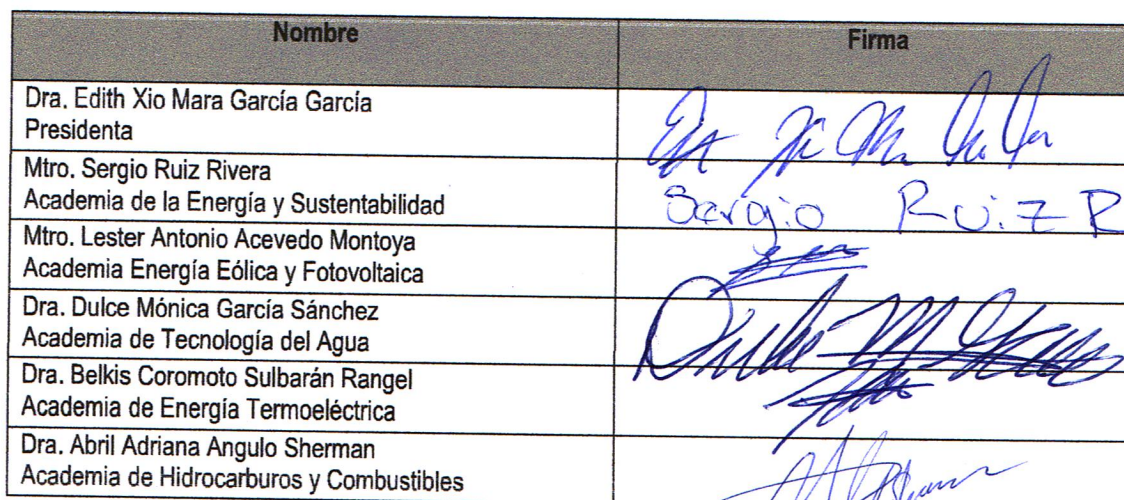 Nombre Firma
Dra. Edith Xio Mara García García
Presidenta
Mtro. Sergio Ruiz Rivera
Academia de la Energía y Sustentabilidad
Sergio Ruiz R
Mtro. Lester Antonio Acevedo Montoya
Academia Energía Eólica y Fotovoltaica
Dra. Dulce Mónica García Sánchez
Academia de Tecnología del Agua
Dra. Belkis Coromoto Sulbarán Rangel
Academia de Energía Termoeléctrica
Dra. Abril Adriana Angulo Sherman
Academia de Hidrocarburos y Combustibles